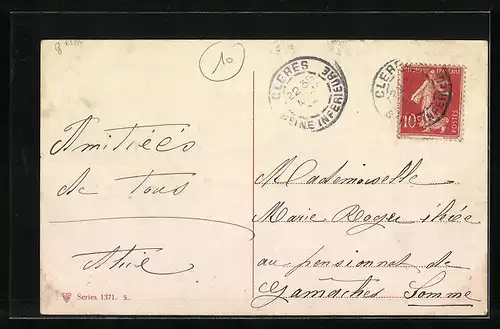 10
CLERES
SEINE INFERIEURE
CLERES
10c
POSTES
Amitiées
de Tous
Mademoiselle
Marie Roger
au pensionnat de
Gamaches Somme
Series 1371. S.